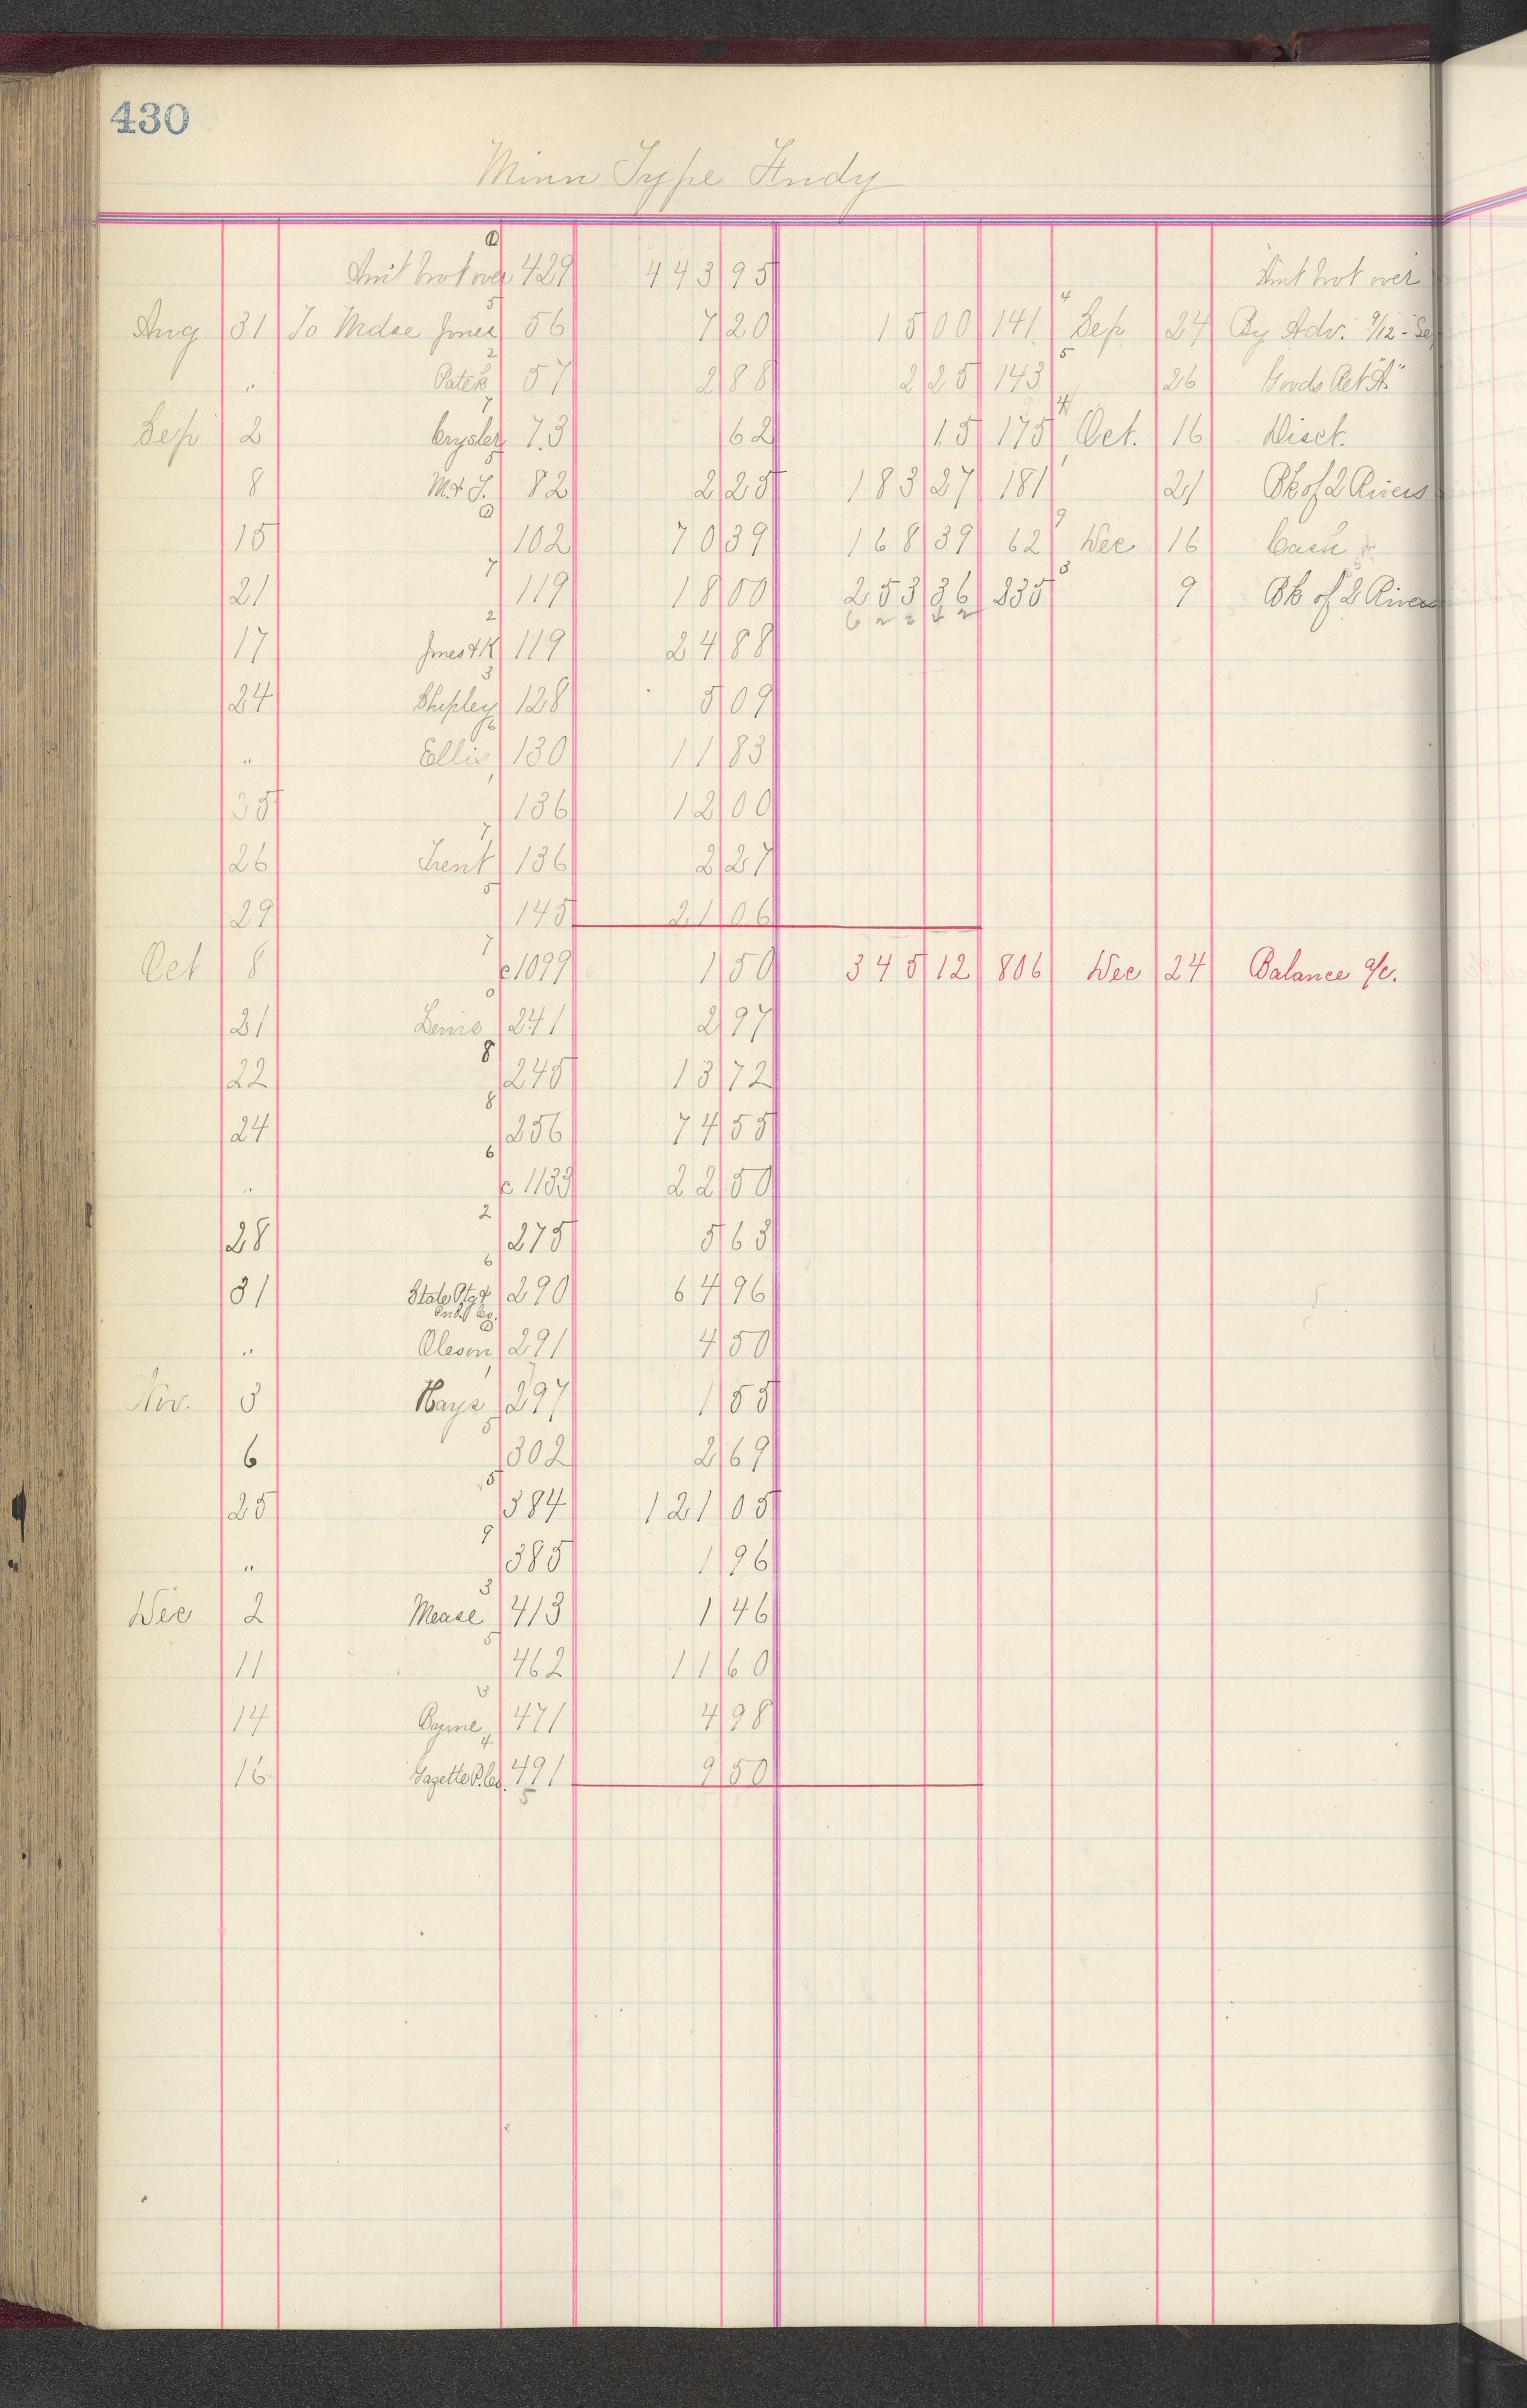 430
Minn Type Fndy
Amt brot over 429 443 95 Amt brot over
Aug 31 To Mdse Jones 56 7 20 15 00 141 Sep 24 By Adv. 9/12
" Patek 57 2 88 2 25 143 26 Goods Ret'd
Sep 2 Crysler 73 62 15 175 Oct. 16 Disct.
8 M. & J. 82 2 25 183 27 181 21 Bk of 2 Rivers
15 102 70 39 168 39 62 Dec 16 Cash
21 119 18 00 253 36 335 9 Bk of 2 Rivers
6 2 2 4 2
17 Jones & K 119 24 88
24 Shipley 128 5 09
" Ellis 130 11 83
35 136 12 00
26 Trent 136 2 27
29 145 21 06
Oct 8 c 1099 1 50 345 12 806 Dec 24 Balance a/c.
21 Lewis 241 2 97
22 245 13 72
24 256 74 55
" c 1133 22 50
28 275 5 63
31 State Ptg & 290 64 96
Pub. Co.
" Oleson 291 4 50
Nov. 3 Hays 297 1 55
6 302 2 69
25 384 121 05
" 385 1 96
Dec 2 Mease 413 1 46
11 462 11 60
14 471 4 98
16 Gazette P. Co. 491 9 50
5